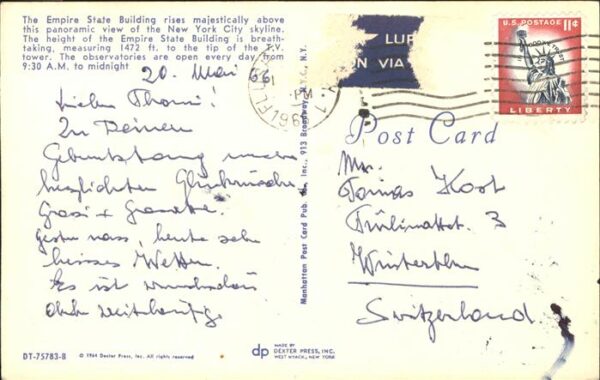 The Empire State Building rises majestically above
this panoramic view of the New York City skyline.
The height of the Empire State Building is breath-
taking, measuring 1472 ft. to the tip of the T.V.
tower. The observatories are open every day from
9:30 A.M. to midnight
20. Mai 66
Lieber Thomi!
Zu Deinem
Geburtstag
herzlichen Glückwünsche
heute sehr
heisses Wetter.
Es ist wunderbar
Manhattan Post Card Pub. Co., Inc., 913 Broadway, N.Y.C., N.Y.
VIA
PM
1966
U.S. POSTAGE 11¢
LIBERTY
Post Card
Mr.
Tomas Kost
3
Winterthur
Switzerland
DT-75783-B
© 1964 Dexter Press, Inc. All rights reserved
dp
MADE BY
DEXTER PRESS, INC.
WEST NYACK, NEW YORK